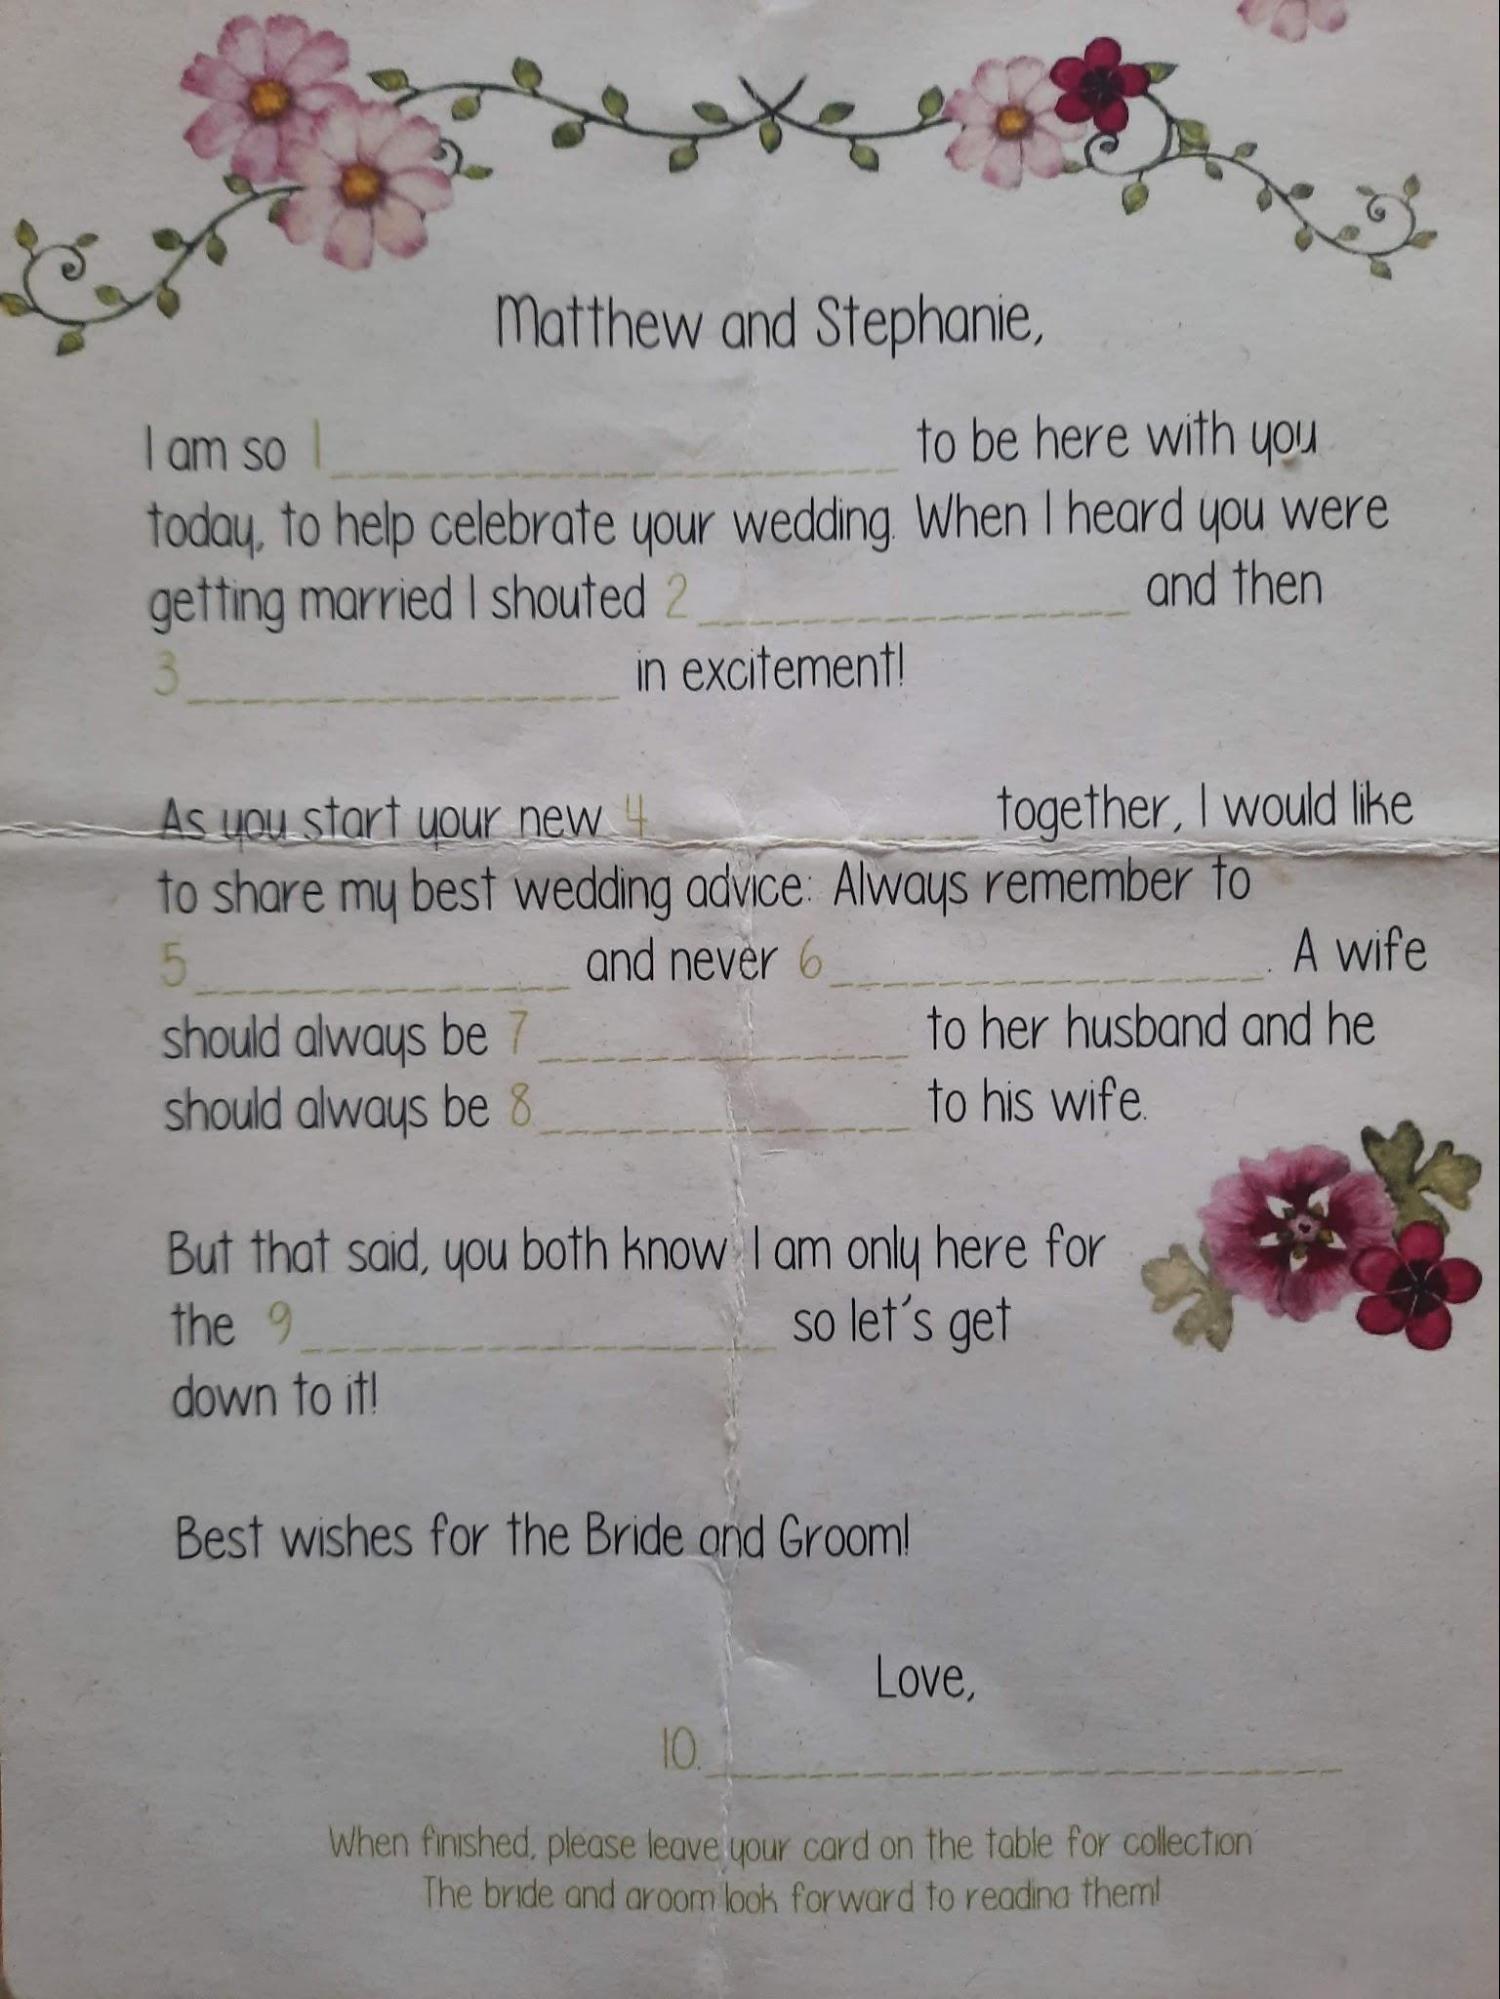 Matthew and Stephanie,
I am so 1_________________ to be here with you
today, to help celebrate your wedding. When I heard you were
getting married I shouted 2_____________ and then
3_____________ in excitement!
As you start your new 4__________ together, I would like
to share my best wedding advice: Always remember to
5___________ and never 6_____________. A wife
should always be 7___________ to her husband and he
should always be 8___________ to his wife.
But that said, you both know I am only here for
the 9______________ so let's get
down to it!
Best wishes for the Bride and Groom!
Love,
10.___________________
When finished, please leave your card on the table for collection
The bride and groom look forward to reading them!